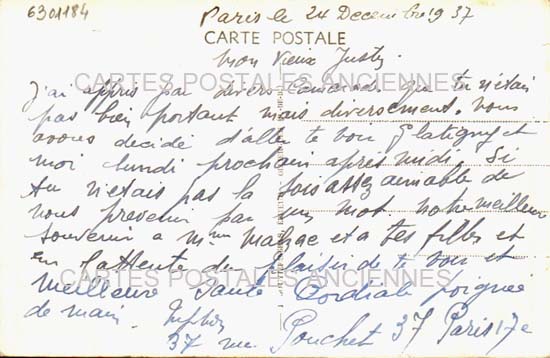 6301184
Paris le 24 Decembre 1937
CARTE POSTALE
Mon Vieux Justy.
J'ai appris par divers camarade que tu n'étais
CARTES POSTALES ANCIENNES
pas bien portant mais diversement. Nous
avons décidé d'aller te voir Glatigny et
moi lundi prochain après midi. Si
tu n'étais pas la sois assez aimable de
nous prevenir par un mot notre meilleur
souvenir a Mme et a tes filles et
En l'attente du Plaisir de te voir et
CARTES POSTALES ANCIENNES
Meilleure Santé Cordiale poignée
de main.
37 rue Pouchet 37 Paris 17e